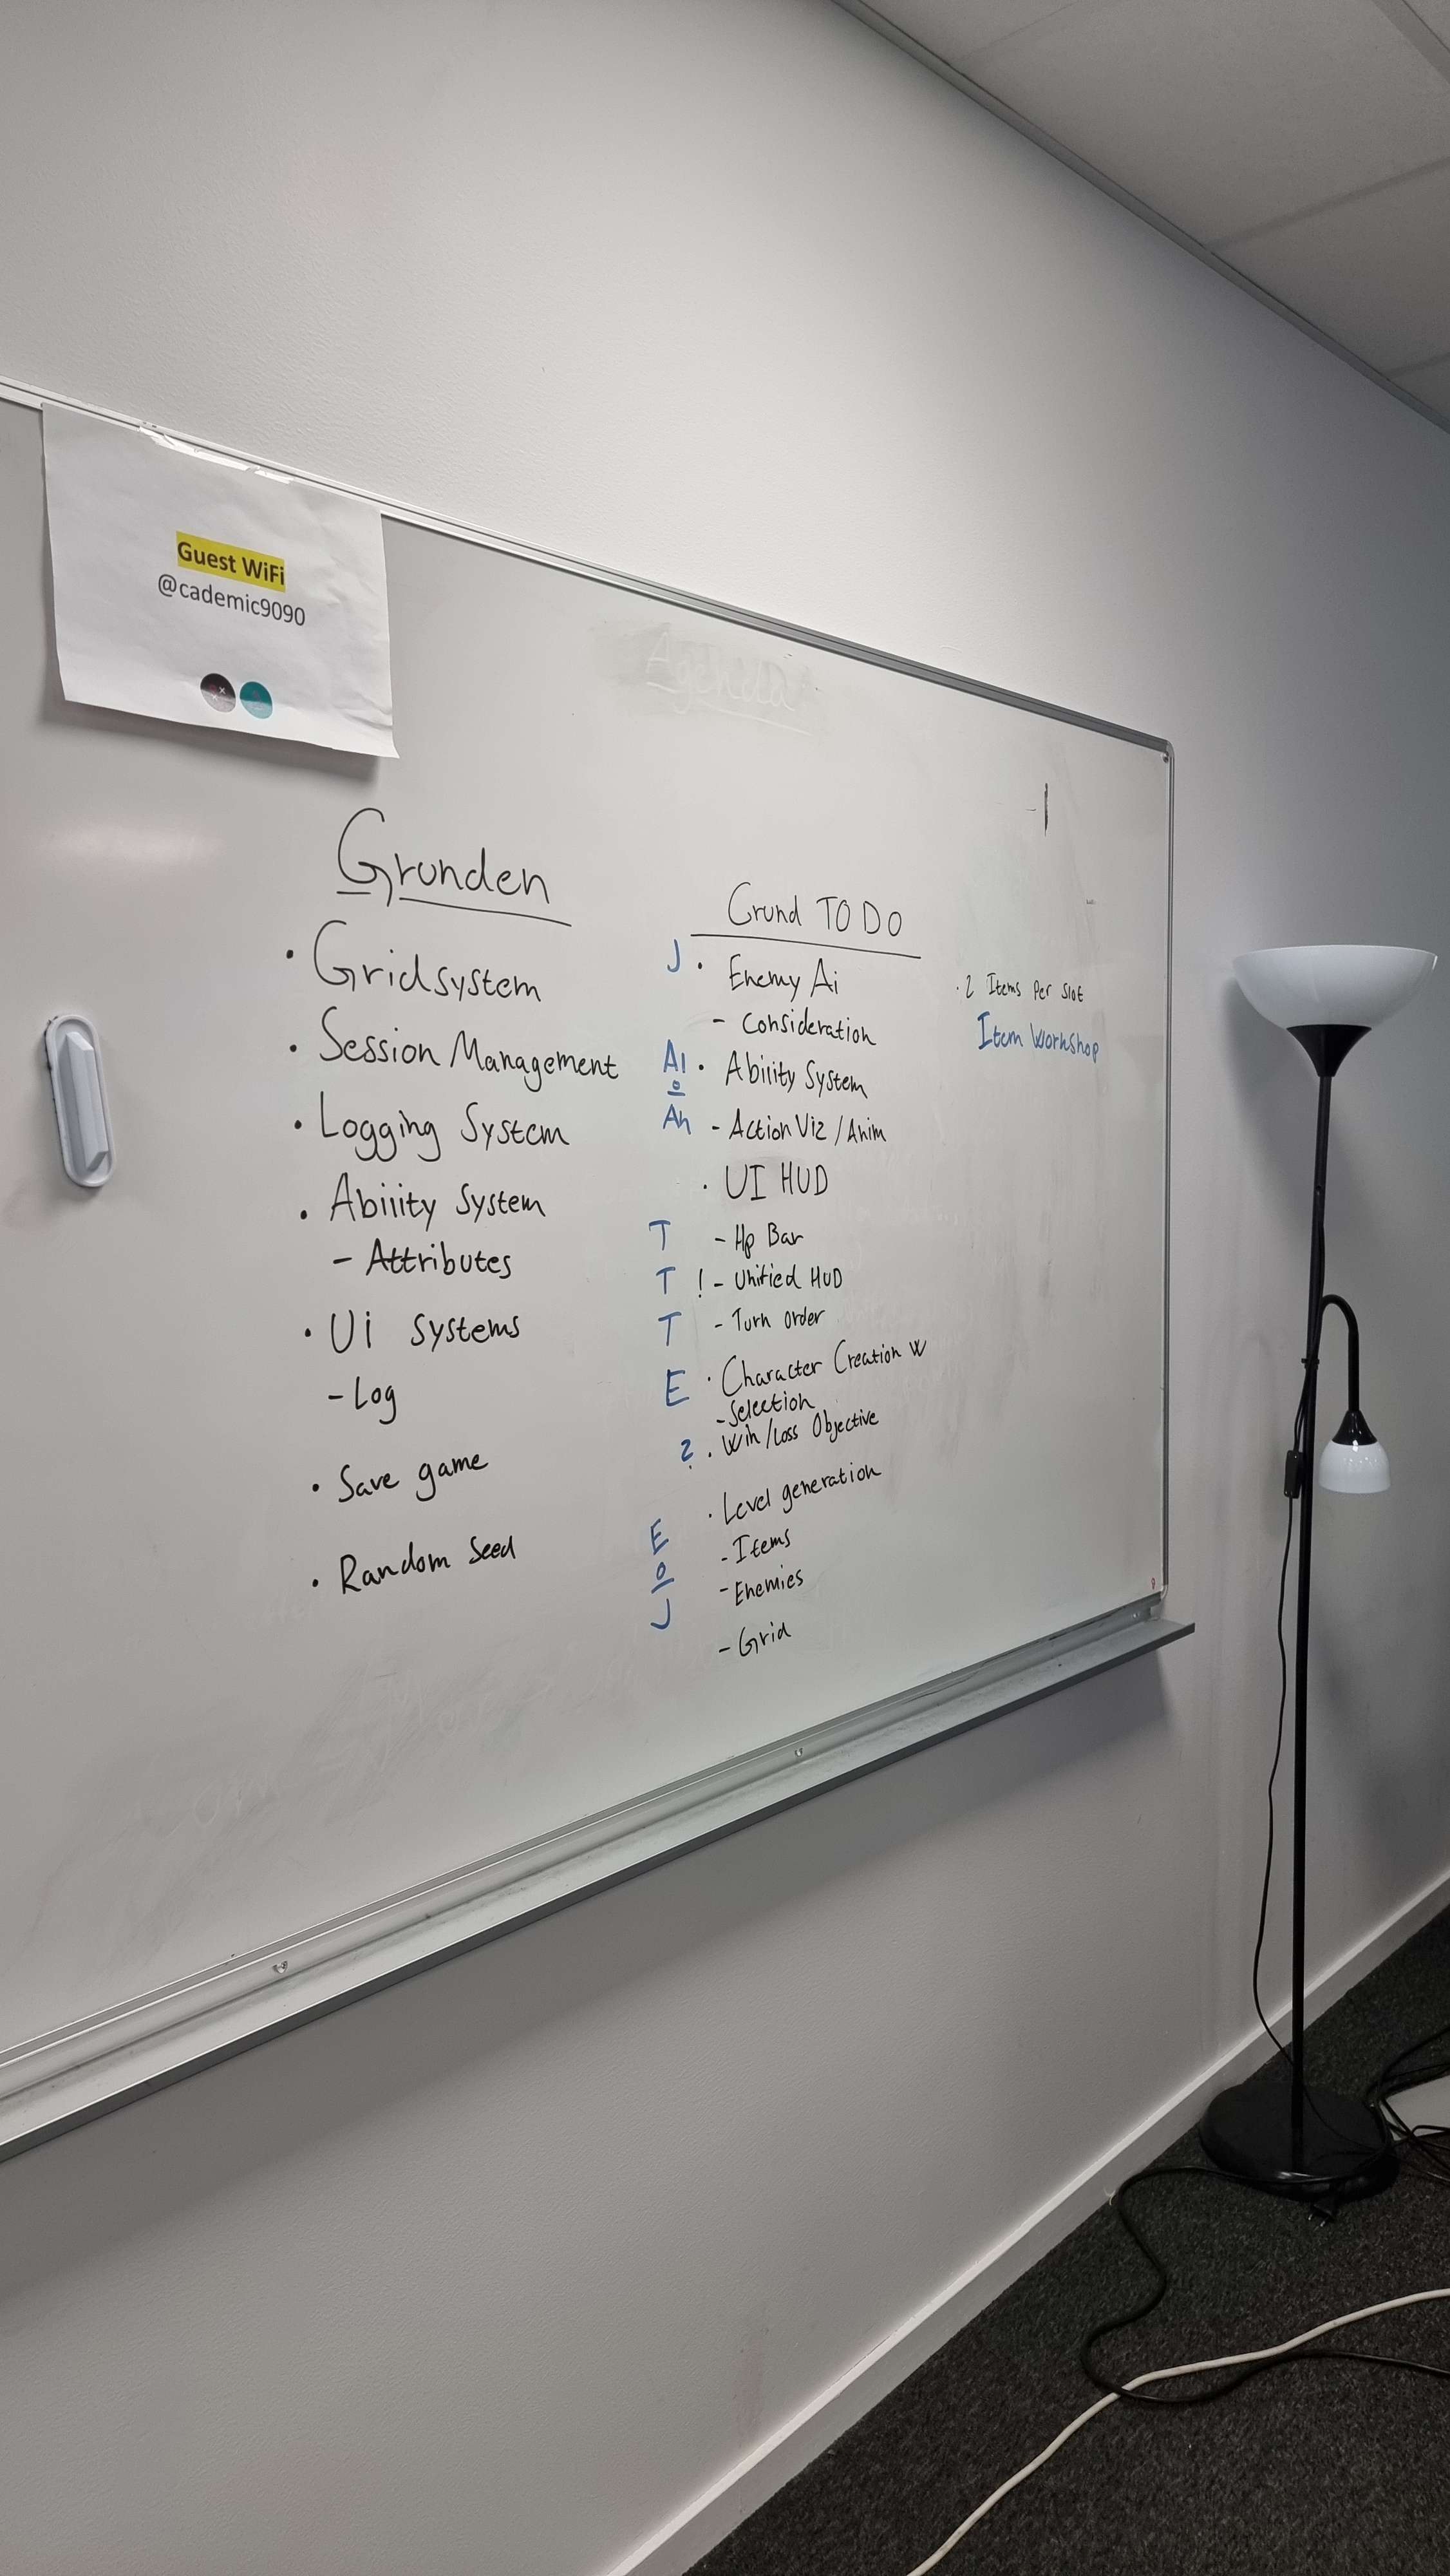 Guest WiFi
@cademic9090
Agenda
Grunden
• Gridsystem
• Session Management
• Logging System
• Ability System
- Attributes
• Ui systems
- Log
• Save game
• Random Seed
Grund TO DO
J • Enemy Ai
- Consideration
Al • Ability System
o
An - Action Viz / Anim
• UI HUD
T - Hp Bar
T ! - Unified HUD
T - Turn order
E • Character Creation W
- Selection
? • Win/Loss Objective
• Level generation
E - Items
o - Enemies
J - Grid
• 2 Items Per slot
Item Workshop